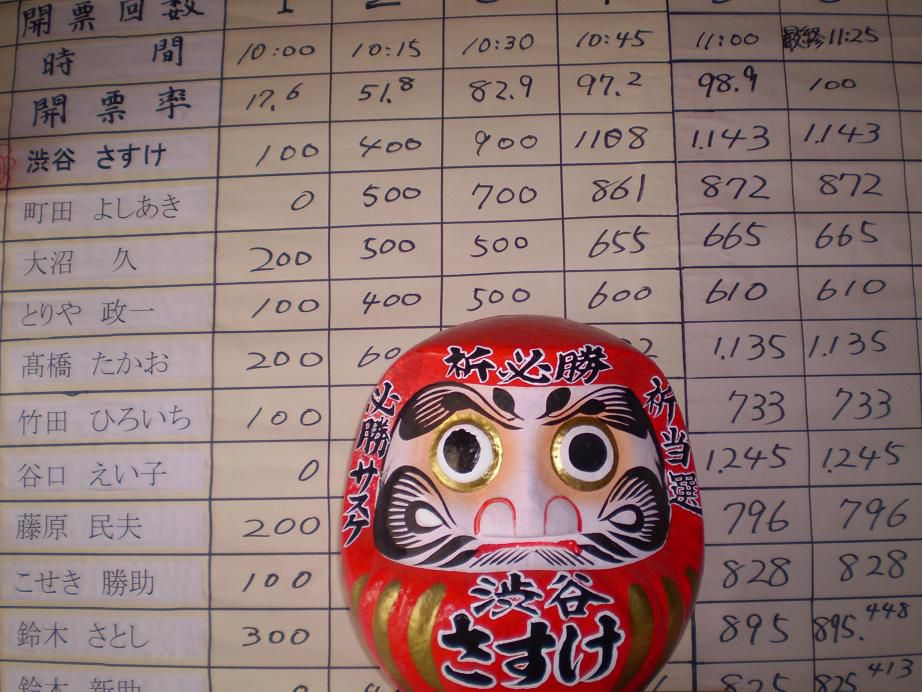 開票回数 1 2
時間 10:00 10:15 10:30 10:45 11:00 最終11:25
開票率 17.6 51.8 82.9 97.2 98.9 100
渋谷 さすけ 100 400 900 1108 1.143 1.143
町田 よしあき 0 500 700 861 872 872
大沼 久 200 500 500 655 665 665
とりや 政一 100 400 500 600 610 610
髙橋 たかお 200 1.135 1.135
竹田 ひろいち 100 733 733
谷口 えい子 0 1.245 1.245
藤原 民夫 200 796 796
こせき 勝助 100 828 828
鈴木 さとし 300 895 895.448
鈴木 新助 825 825.413
祈必勝
必勝サスケ
祈当選
渋谷
さすけ